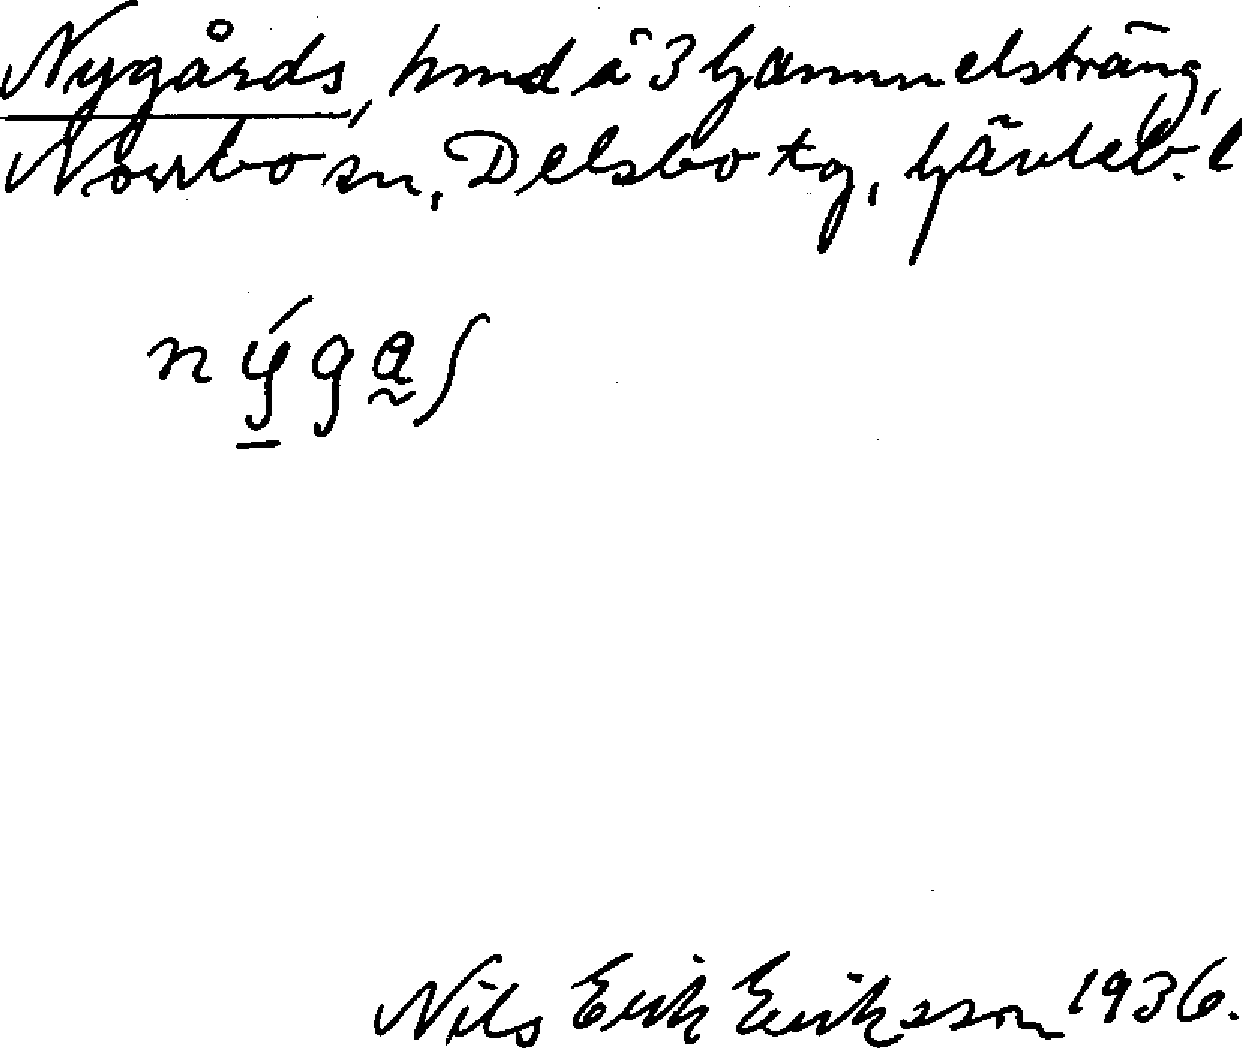 Nygårds, hmd å 3 Gammelsträng,
Norrbo sn, Delsbo tg, Gävleb. l
nýgaʃ
Nils Erik Eriksson 1936.